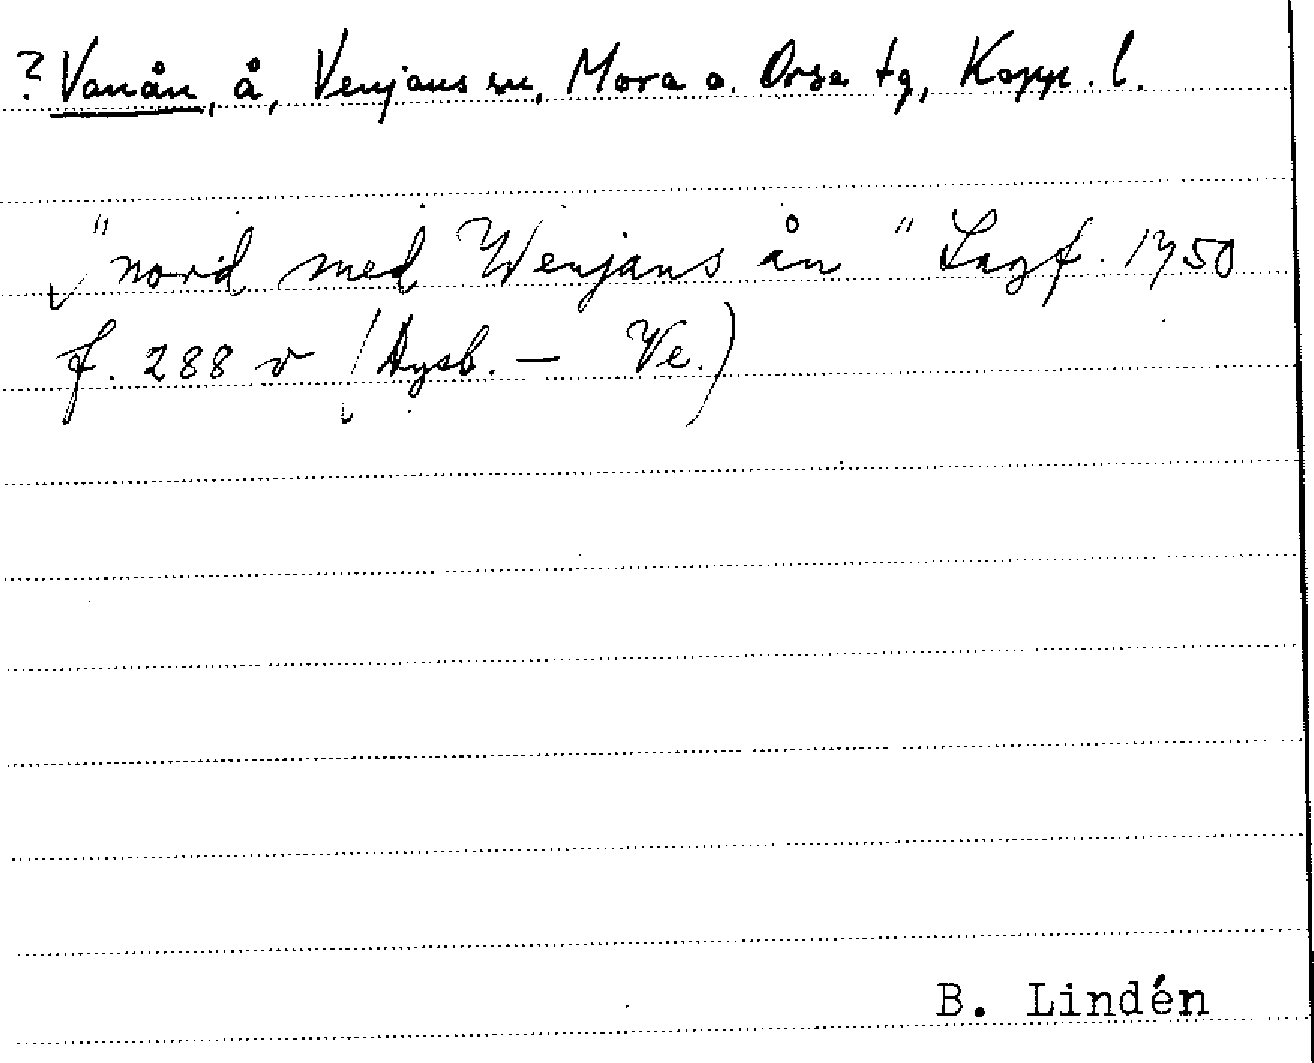 ? Vanån, å, Venjans sn, Mora o. Orsa tg, Kopp. l.
"nord med Wenjans ån" Lagf. 1750
f. 288 v (Aysb. – Ve.)
B. Lindén